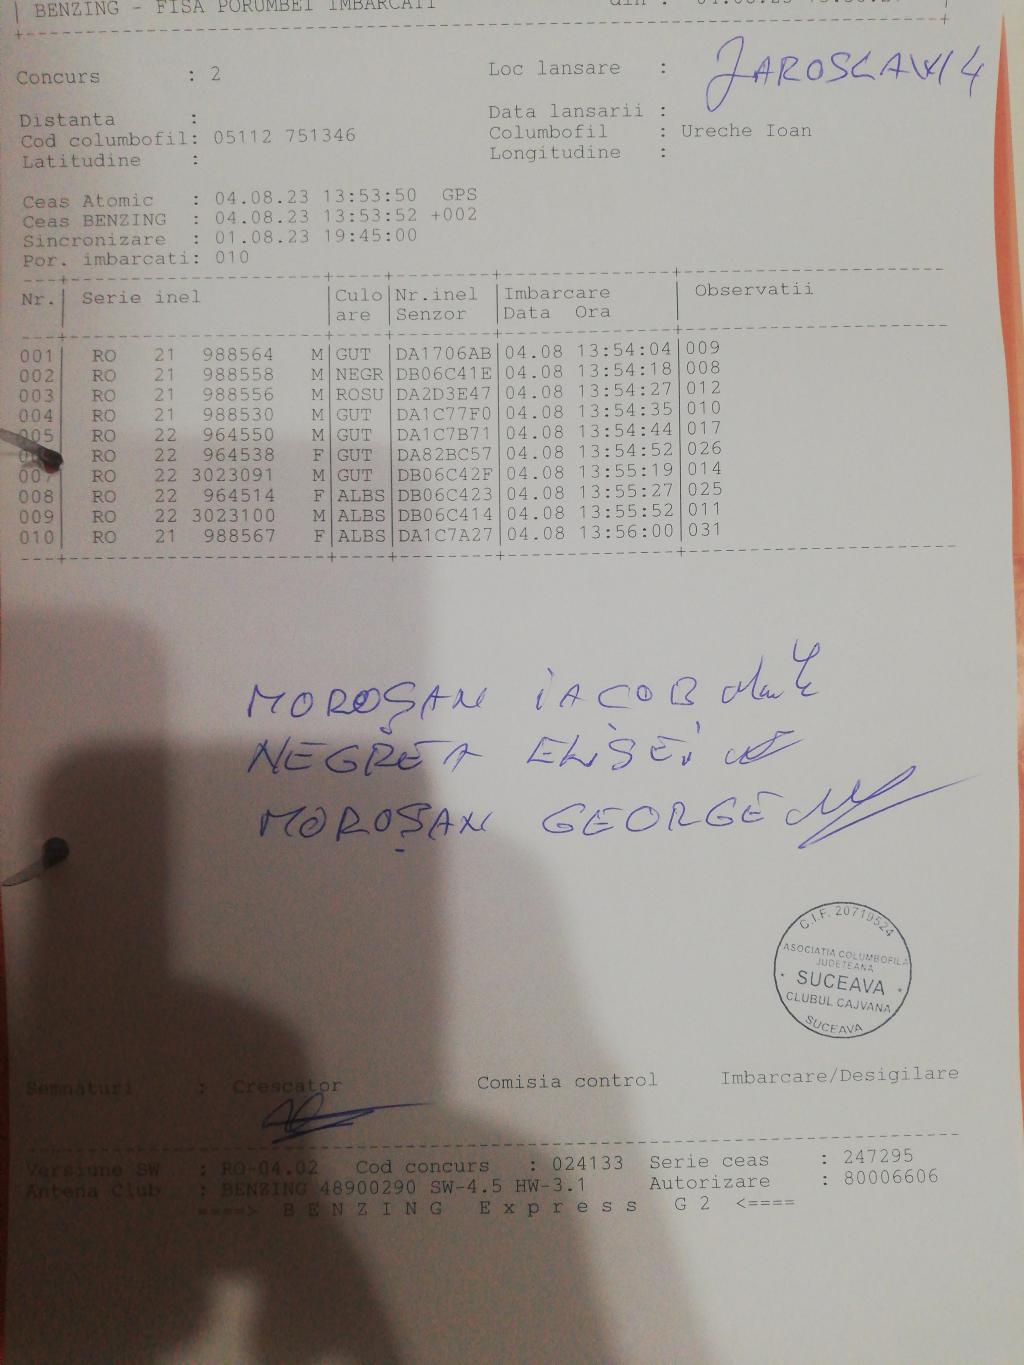 BENZING - FISA PORUMBEI IMBARCATI din :
Concurs : 2 Loc lansare : JAROSLAW 4
Distanta : Data lansarii :
Cod columbofil: 05112 751346 Columbofil : Ureche Ioan
Latitudine : Longitudine :
Ceas Atomic : 04.08.23 13:53:50 GPS
Ceas BENZING : 04.08.23 13:53:52 +002
Sincronizare : 01.08.23 19:45:00
Por. imbarcati: 010
Nr. Serie inel Culo Nr.inel Imbarcare Observatii
are Senzor Data Ora
001 RO 21 988564 M GUT DA1706AB 04.08 13:54:04 009
002 RO 21 988558 M NEGR DB06C41E 04.08 13:54:18 008
003 RO 21 988556 M ROSU DA2D3E47 04.08 13:54:27 012
004 RO 21 988530 M GUT DA1C77F0 04.08 13:54:35 010
005 RO 22 964550 M GUT DA1C7B71 04.08 13:54:44 017
RO 22 964538 F GUT DA82BC57 04.08 13:54:52 026
007 RO 22 3023091 M GUT DB06C42F 04.08 13:55:19 014
008 RO 22 964514 F ALBS DB06C423 04.08 13:55:27 025
009 RO 22 3023100 M ALBS DB06C414 04.08 13:55:52 011
010 RO 21 988567 F ALBS DA1C7A27 04.08 13:56:00 031
MOROȘAN IACOB
NEGREA ELISEI
MOROȘAN GEORGE
C.I.F. 20719524
ASOCIATIA COLUMBOFILA
JUDETEANA
SUCEAVA
CLUBUL CAJVANA
SUCEAVA
Semnaturi : Crescator Comisia control Imbarcare/Desigilare
Versiune SW : RO-04.02 Cod concurs : 024133 Serie ceas : 247295
Antena Club : BENZING 48900290 SW-4.5 HW-3.1 Autorizare : 80006606
====> B E N Z I N G E x p r e s s G 2 <====